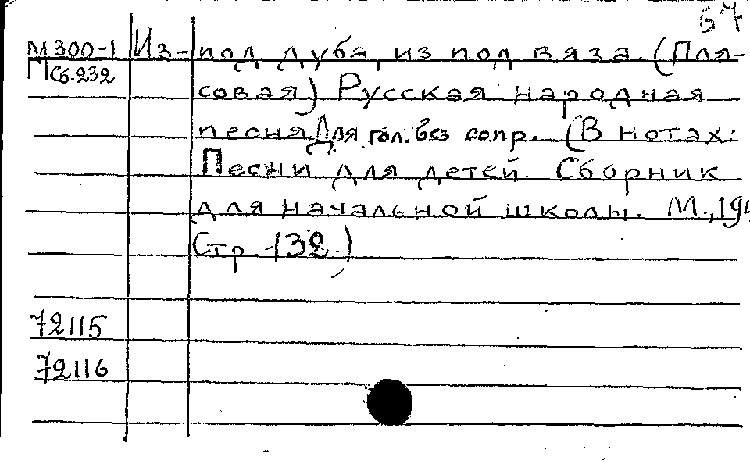 57
М300-1 Из-под дуба, из под вяза. (Пля-
Псб.232 совая) Русская народная
песня. Для гол. без сопр. (В нотах:
Песни для детей. Сборник
для начальной школы. М.,
Стр. 132.)
72115
72116